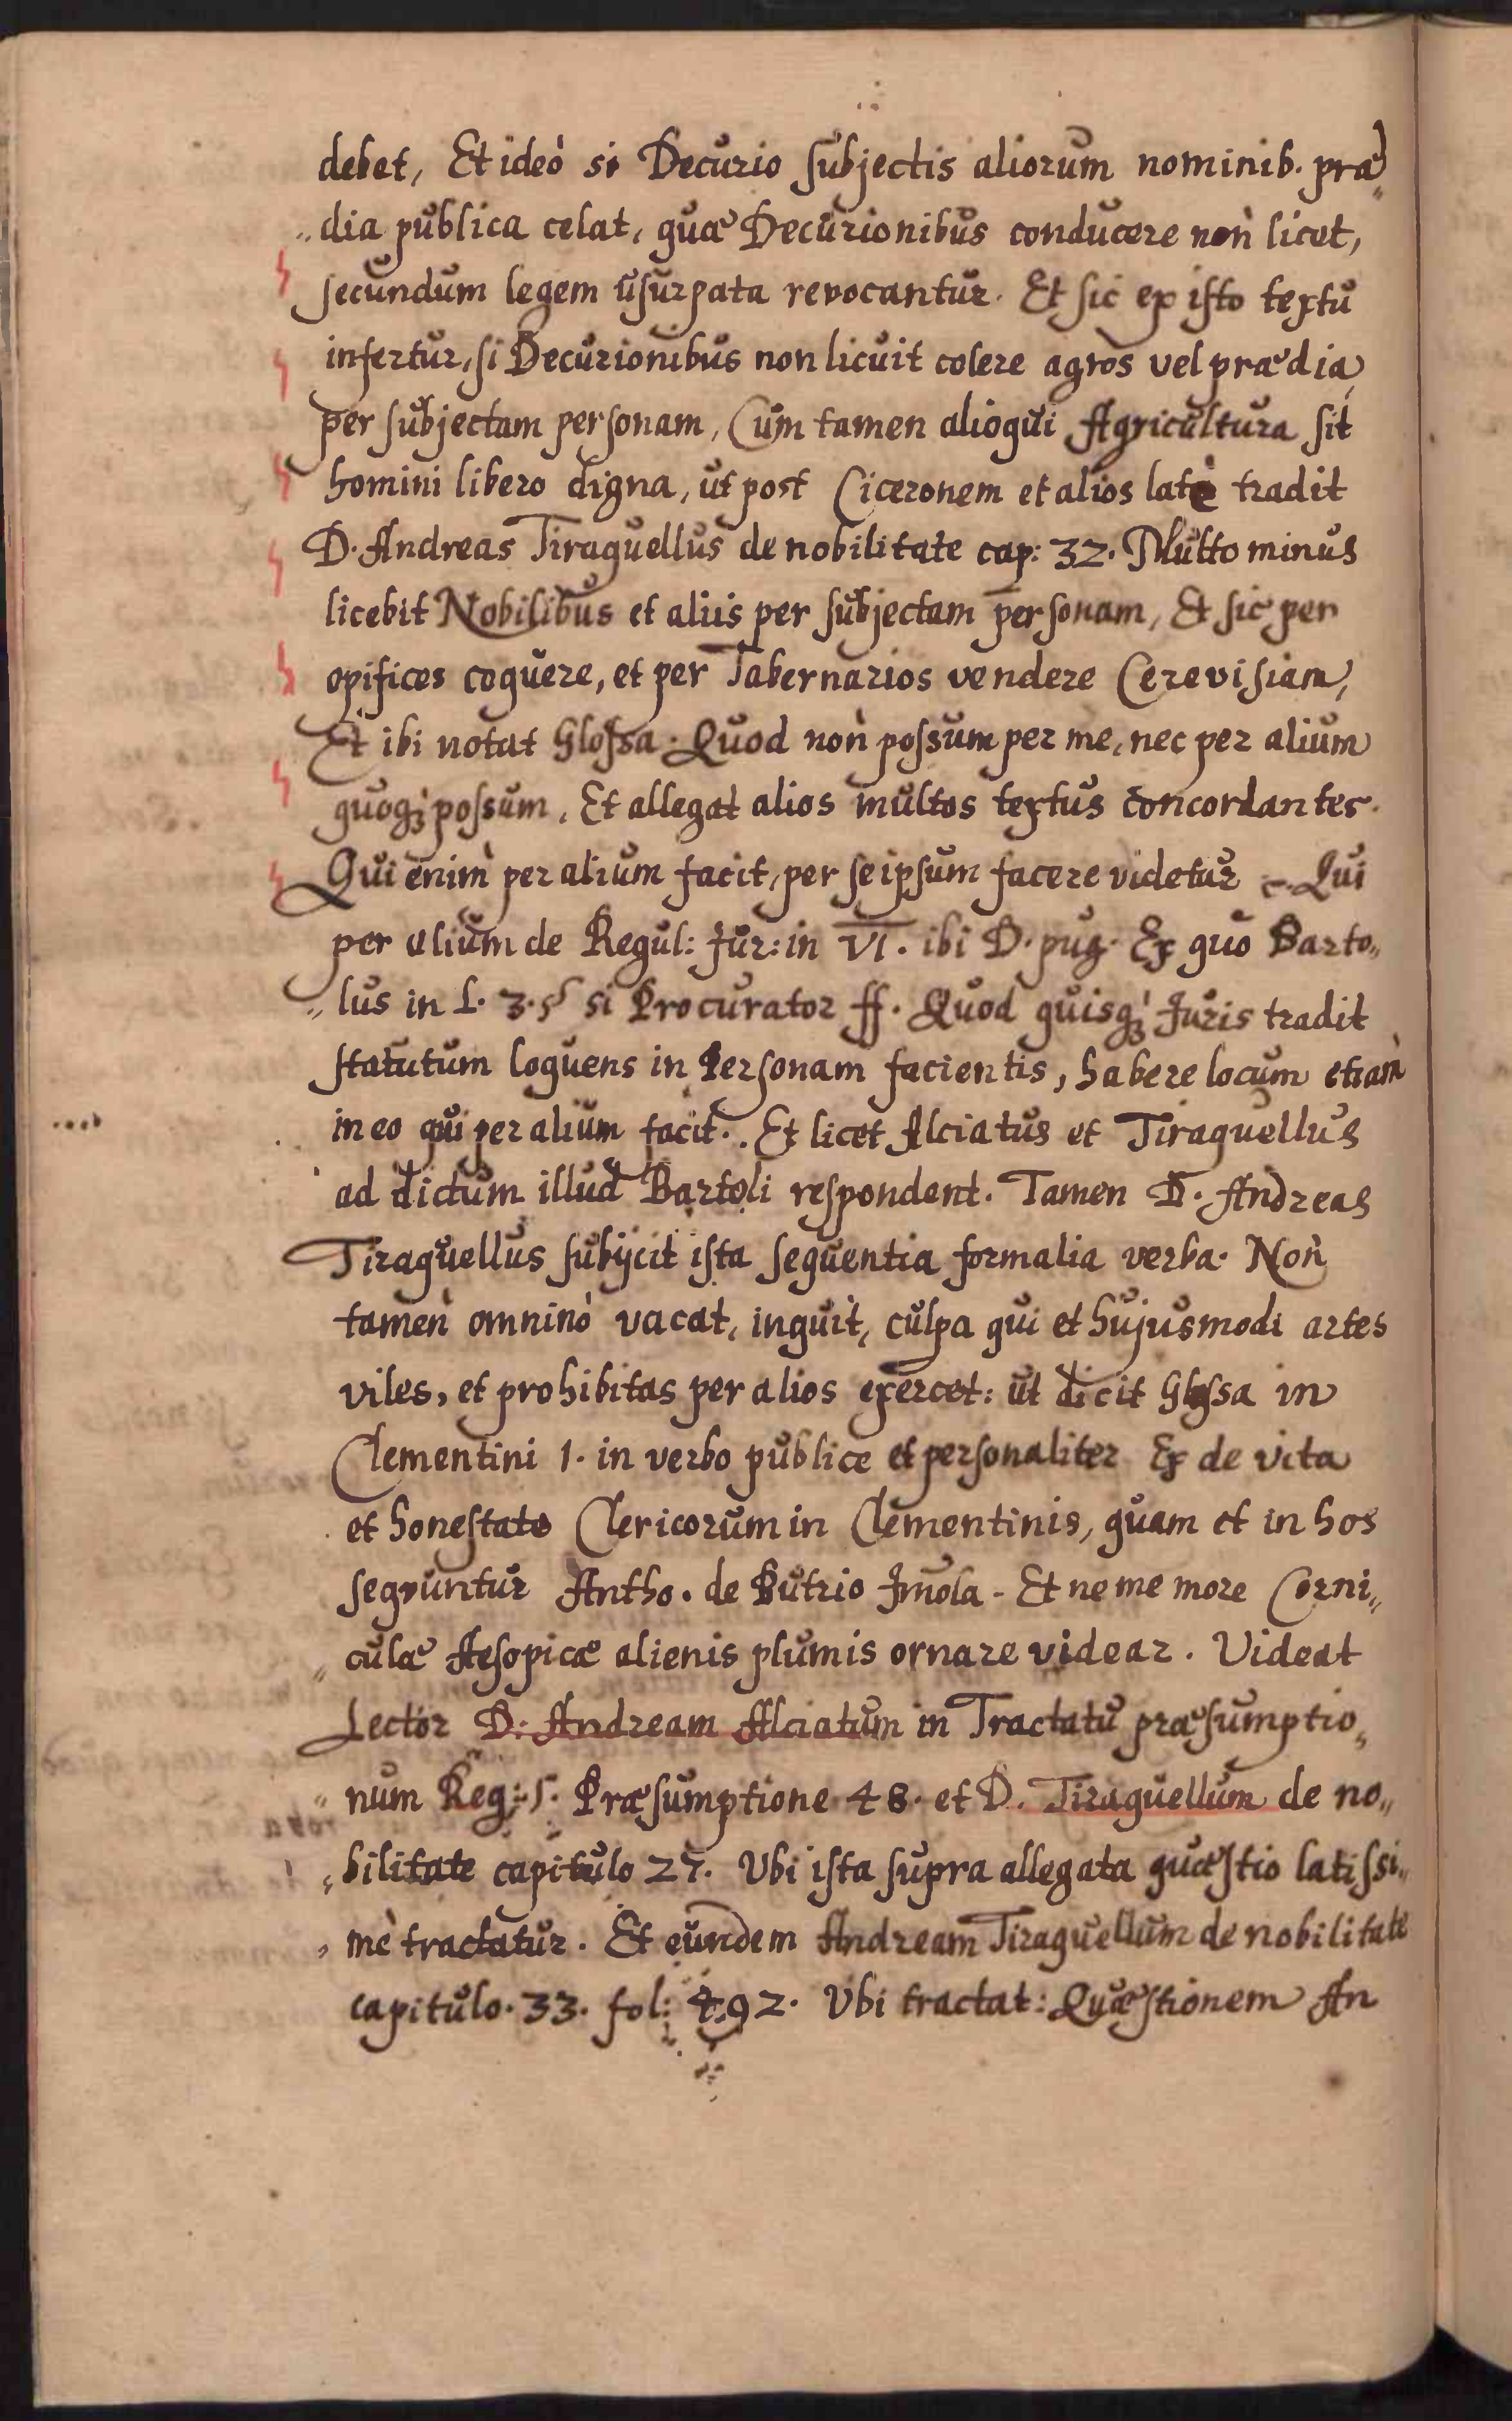 debet, Et ideò si Decurio subjectis aliorum nominib. præ„
„dia publica celat, quæ Decurionibus conducere non licet,
secundum legem usurpata revocantur. Et sic ex isto textu
infertur, si Decurionibus non licuit colere agros vel prædia,
per subjectam personam, Cum tamen alioqui Agricultura sit
homini libero digna, ut post Ciceronem et alios latè tradit
D. Andreas Tiraquellus de nobilitate cap: 32. Multo minus
licebit Nobilibus et aliis per subjectam personam, Et sic per
opifices coquere, et per Tabernarios vendere Cerevisiam,
Et ibi notat Glossa. Quod non possum per me, nec per alium
quoq; possum. Et allegat alios multos textus concordantes.
Qui enim per alium facit, per se ipsum facere videtur c. Qui
per alium de Regul: Jur: in VI. ibi D. pug. Ex quo Barto„
„lus in L. 3. § si Procurator ff. Quod quisq; Juris tradit
statutum loquens in Personam facientis, habere locum etiam
in eo qui per alium facit. Et licet Alciatus et Tiraquellus
ad dictum illud Bartoli respondent. Tamen D. Andreas
Tiraquellus subijcit ista sequentia formalia verba. Non
tamen omninò vacat, inquit, culpa qui et hujusmodi artes
viles, et prohibitas per alios exercet: ut dicit Glossa in
Clementini 1. in verbo publice et personaliter Ex de vita
et honestate Clericorum in Clementinis, quam et in hos
sequuntur Antho. de Butrio Jmola - Et ne me more Corni„
„culæ Aesopicæ alienis plumis ornare videar. Videat
Lector D. Andream Alciatum in Tractatu præsumptio„
„num Reg: 5. Præsumptione 48. et D. Tiraquellum de no„
„bilitate capitulo 27. Ubi ista supra allegata quæstio latissi„
„mè tractatur. Et eundem Andream Tiraquellum de nobilitate
capitulo. 33. fol: 492. Ubi tractat: Quæstionem An